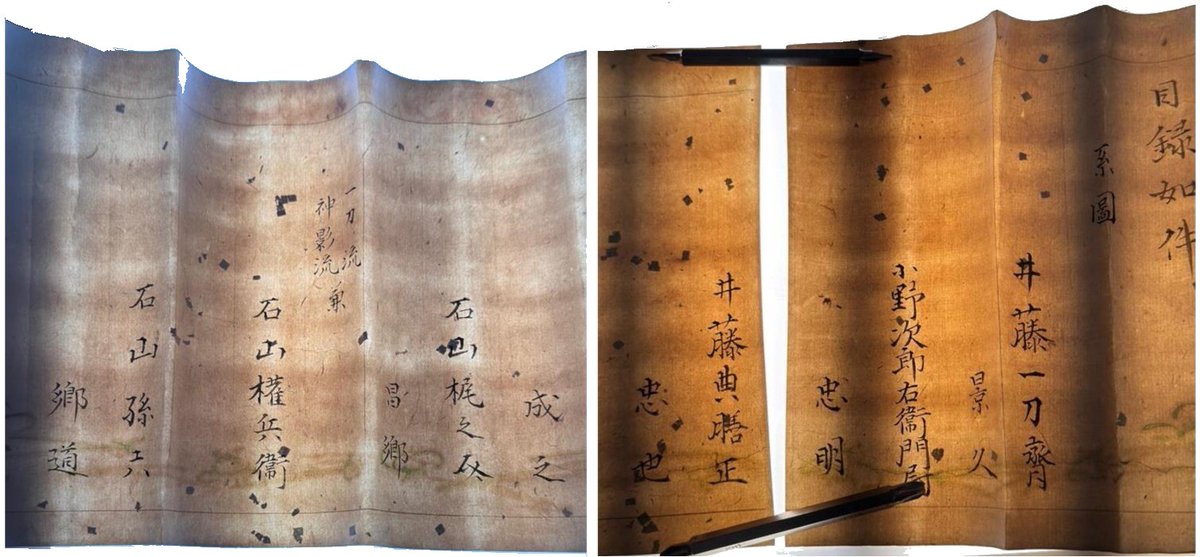 目録如件
系圖
井藤一刀齋
景久
小野次郎右衛門尉
忠明
井藤典膳正
忠也
成之
石山梶之丞
昌郷
一刀流
神影流
兼
石山權兵衛
石山孫六
郷道